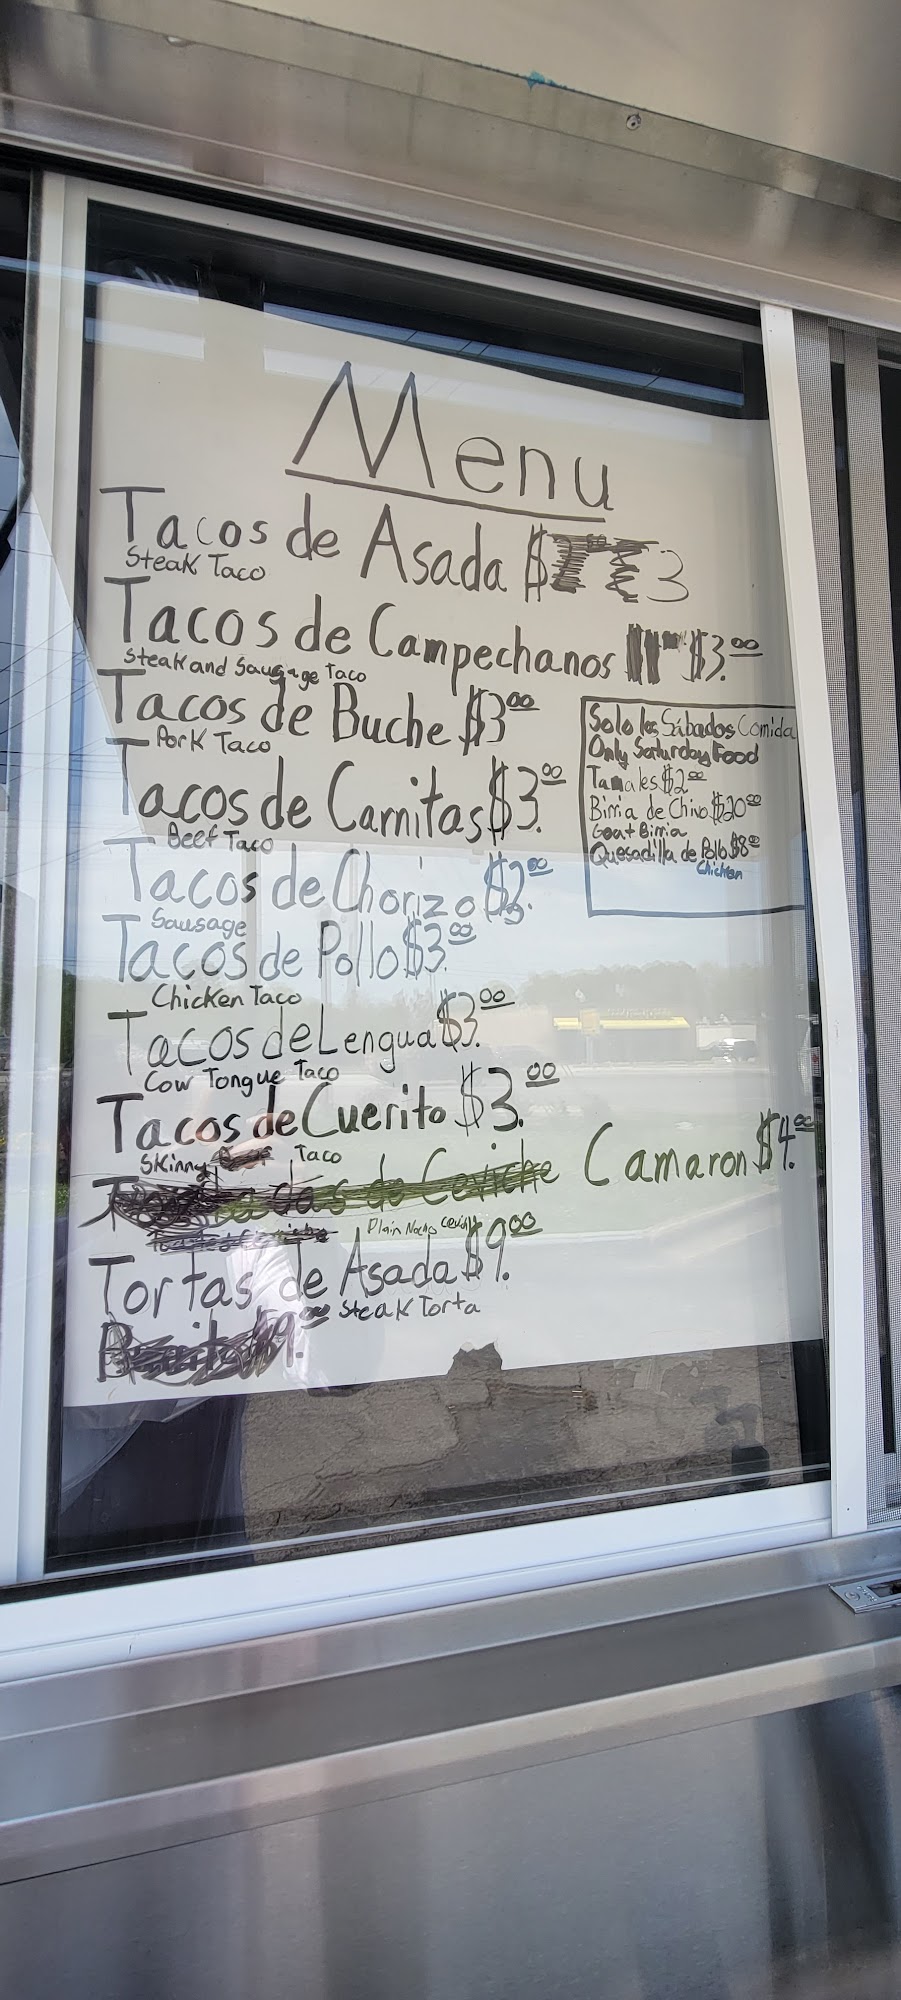 Menu
Tacos de Asada $ 3
Steak Taco
Tacos de Campechanos $3.00
Steak and Sausage Taco
Tacos de Buche $3.00
Pork Taco
Tacos de Carnitas $3.00
Beef Taco
Tacos de Chorizo $3.00
Sausage
Tacos de Pollo $3.00
Chicken Taco
Tacos de Lengua $3.00
Cow Tongue Taco
Tacos de Cuerito $3.00
Skinny Taco
de Ceviche Camaron $4.00
Plain Nacho Cevich
Tortas de Asada $9.00
Steak Torta
$9.00
Solo los Sábados Comida
Only Saturday Food
Tamales $2.00
Birria de Chivo $20.00
Goat Birria
Quesadilla de Pollo $8.00
Chicken